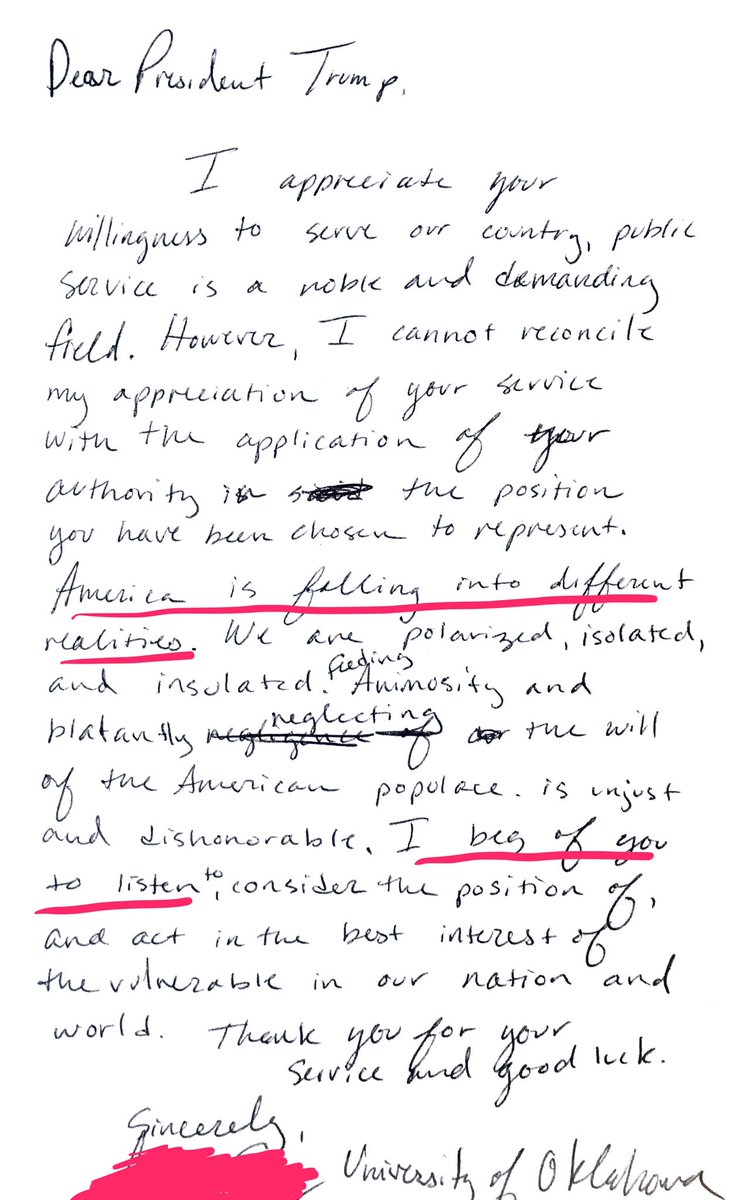 Dear President Trump,
I appreciate your
willingness to serve our country, public
service is a noble and demanding
field. However, I cannot reconcile
my appreciation of your service
with the application of your
authority in the position
you have been chosen to represent.
America is falling into different
realities. We are polarized, isolated,
and insulated. feeding Animosity and
blatantly neglecting the will
of the American populace. is unjust
and dishonorable. I beg of you
to listen to, consider the position of,
and act in the best interest of
the vulnerable in our nation and
world. Thank you for your
service and good luck.
Sincerely,
University of Oklahoma